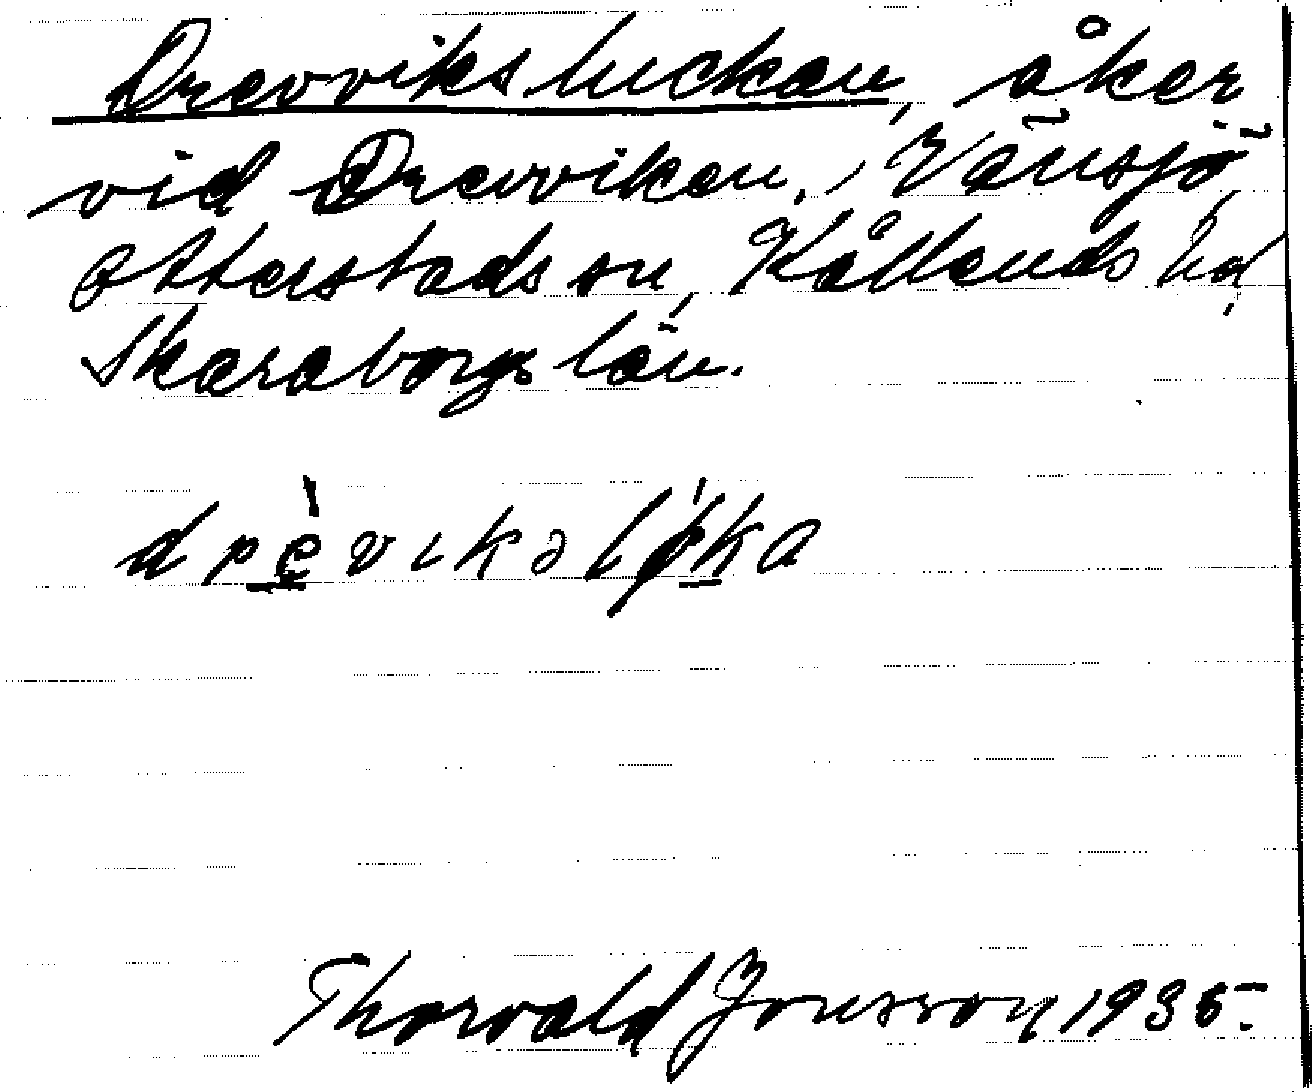 Drevviksluckan, åker
vid Drevviken, Vänsjö,
Otterstads sn, Kållands hd,
Skaraborgs län.
Thorvald Jonsson 1935.